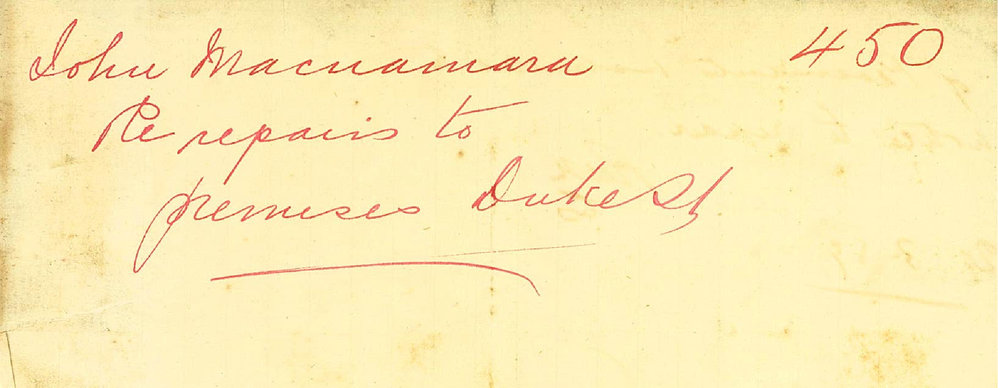 John Macnamara 450
Re repairs to
premises Duke St